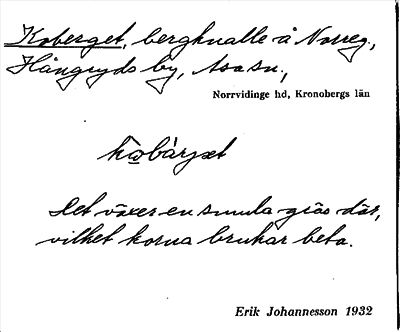 Koberget, bergknalle å Norreg,
Hångryds by, Asa sn.,
Norrvidinge hd, Kronobergs län
kωbàrjæt
Det växer en smula gräs där,
vilket korna brukar beta.
Erik Johannesson 1932